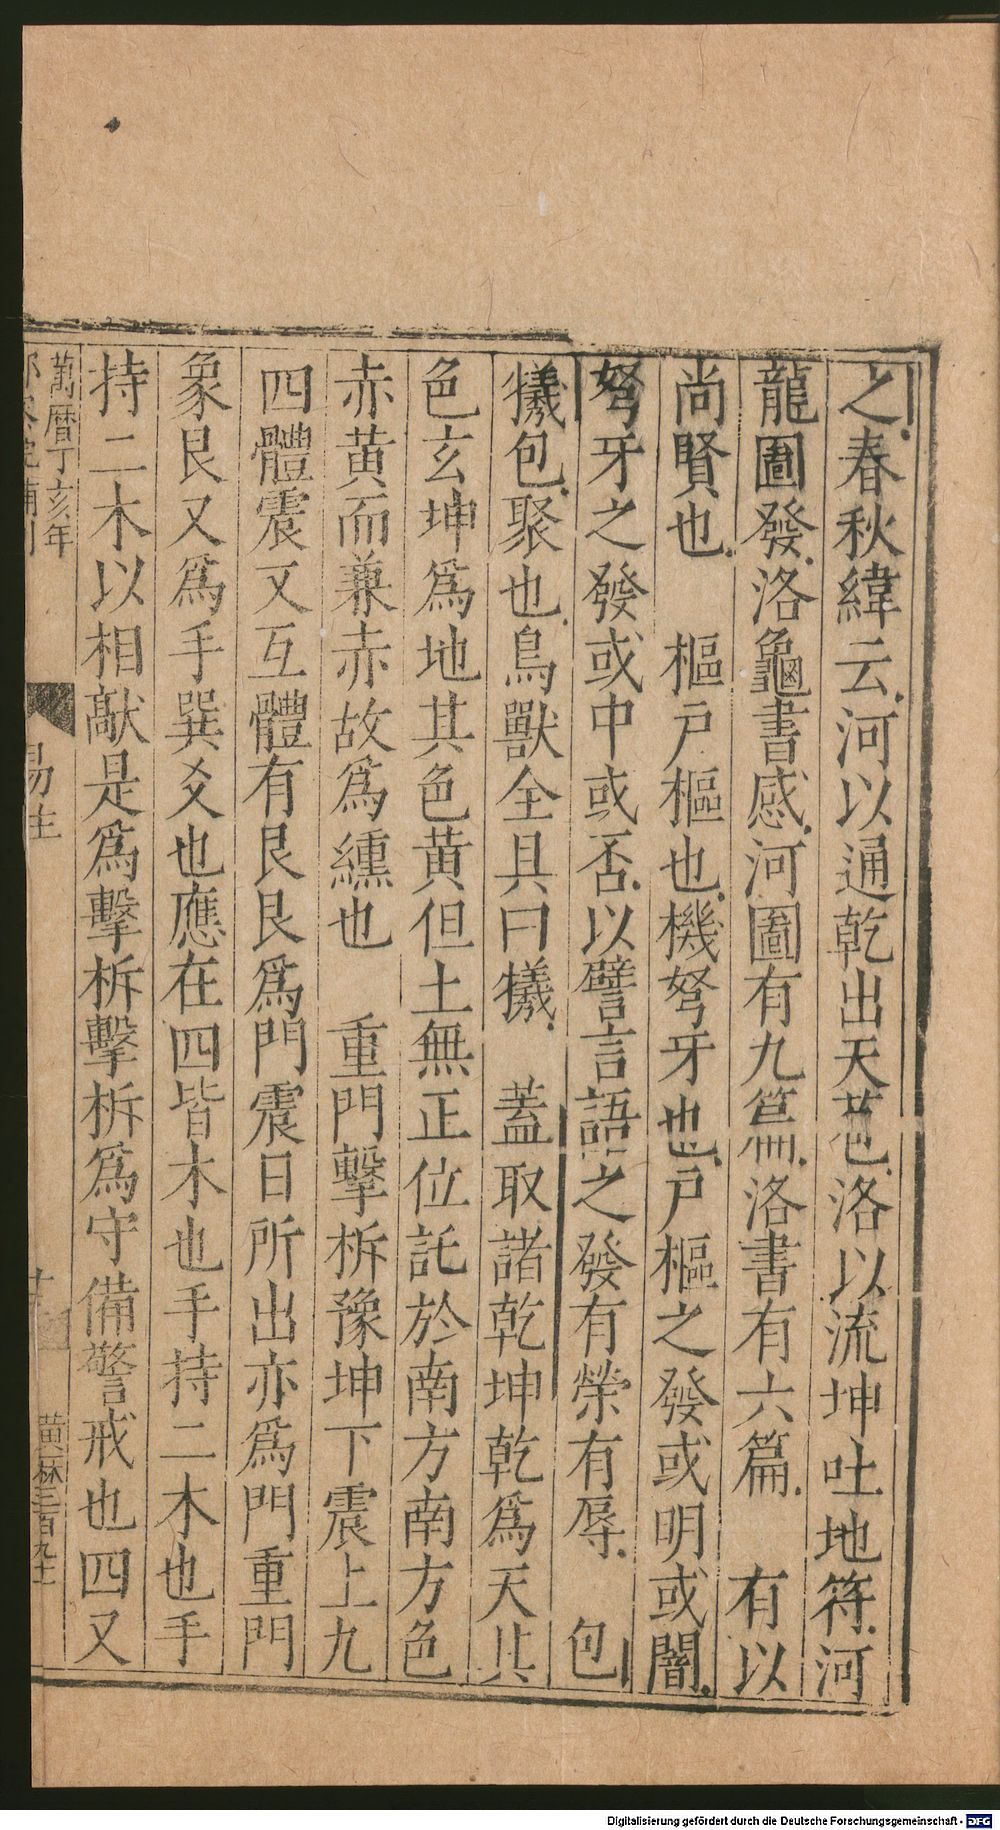 之春秋緯云河以通乾出天苞洛以流坤吐地符河
龍圖發洛龜書感河圖有九篇洛書有六篇　有以
尚賢也　樞戶樞也機弩牙也戶樞之發或明或闇
弩牙之發或中或否以譬言語之發有榮有辱　包
犧包聚也鳥獸全具曰犧　蓋取諸乾坤乾爲天其
色玄坤爲地其色黃但土無正位託於南方南方色
赤黃而兼赤故爲纁也　重門擊柝豫坤下震上九
四體震又互體有艮艮爲門震日所出亦爲門重門
象艮又爲手巽爻也應在四皆木也手持二木也手
持二木以相敲是爲擊柝擊柝爲守備警戒也四又
萬曆丁亥年
易注
Digitalisierung gefördert durch die Deutsche Forschungsgemeinschaft - DFG